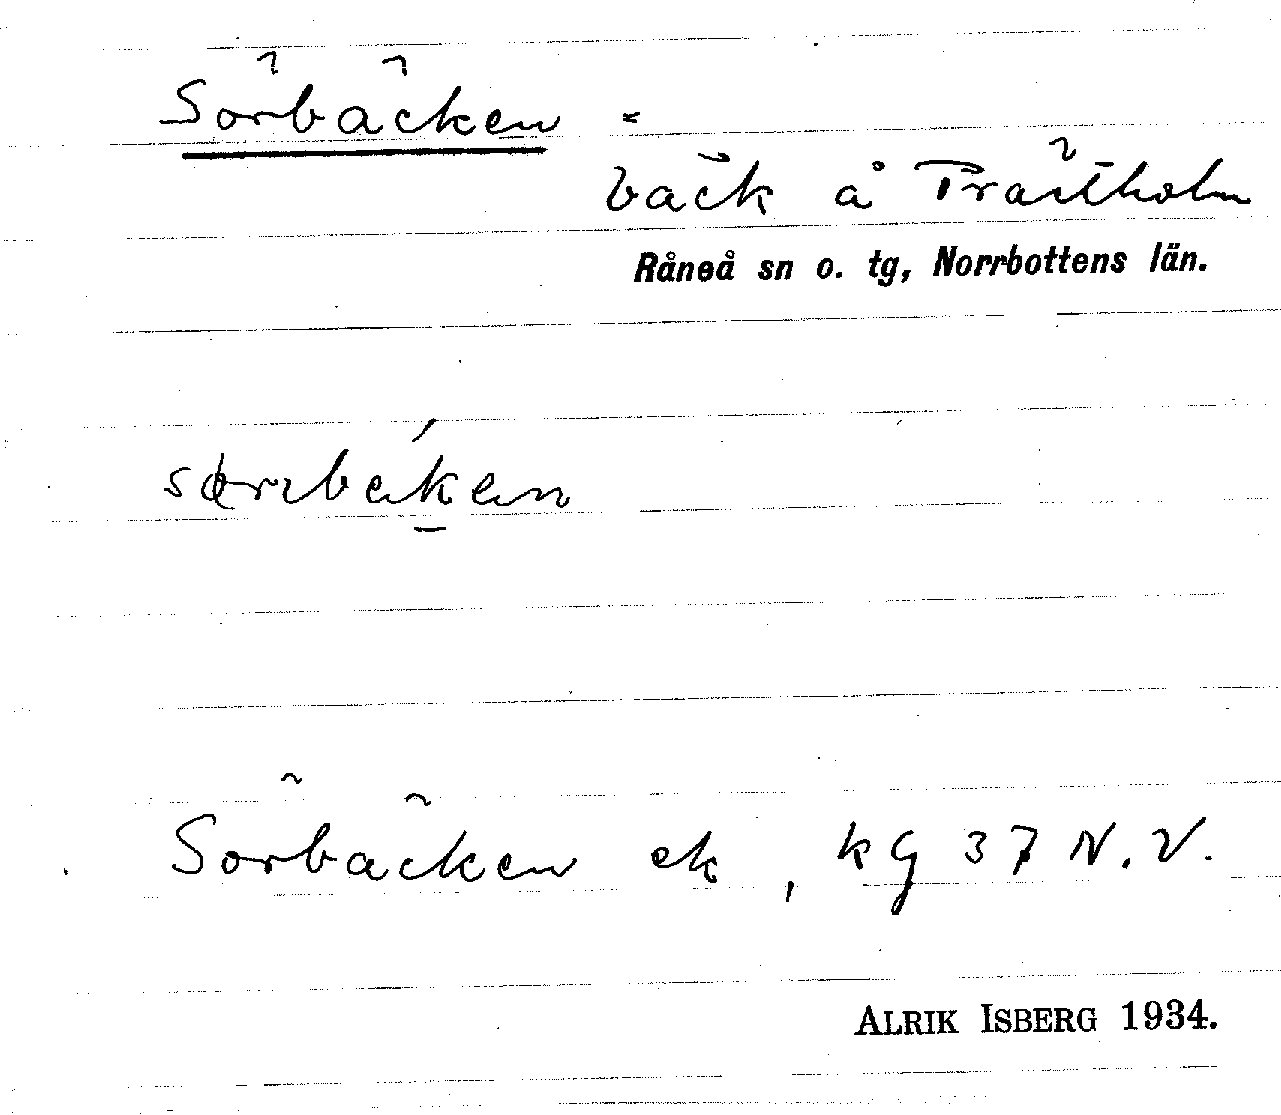 Sörbäcken -
bäck å Trästholm
Råneå sn o. tg, Norrbottens län.
Sörbäcken ek, kg 37 N.V.
ALRIK ISBERG 1934.